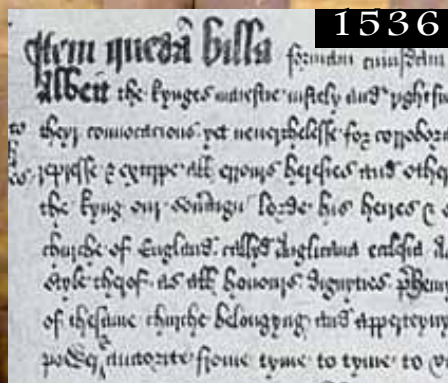 1536
Item quedã billa formam cuiusdam
Albeit the kynges maiestie iustely and ryghtfu
to theyr conuocacions yet neuerthelesse for corrobora
repress & extirpe all errours heresies and other
the kyng our soueraign lorde his heires &
churche of England callyd Anglicana ecclesia
style therof as all honours dignyties
of thesame churche belongyng and apperteynyng
power auctorite frome tyme to tyme to